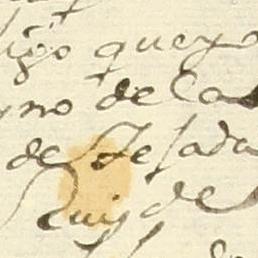 digo que yo
yno de la
de Tejada
Ruiz de